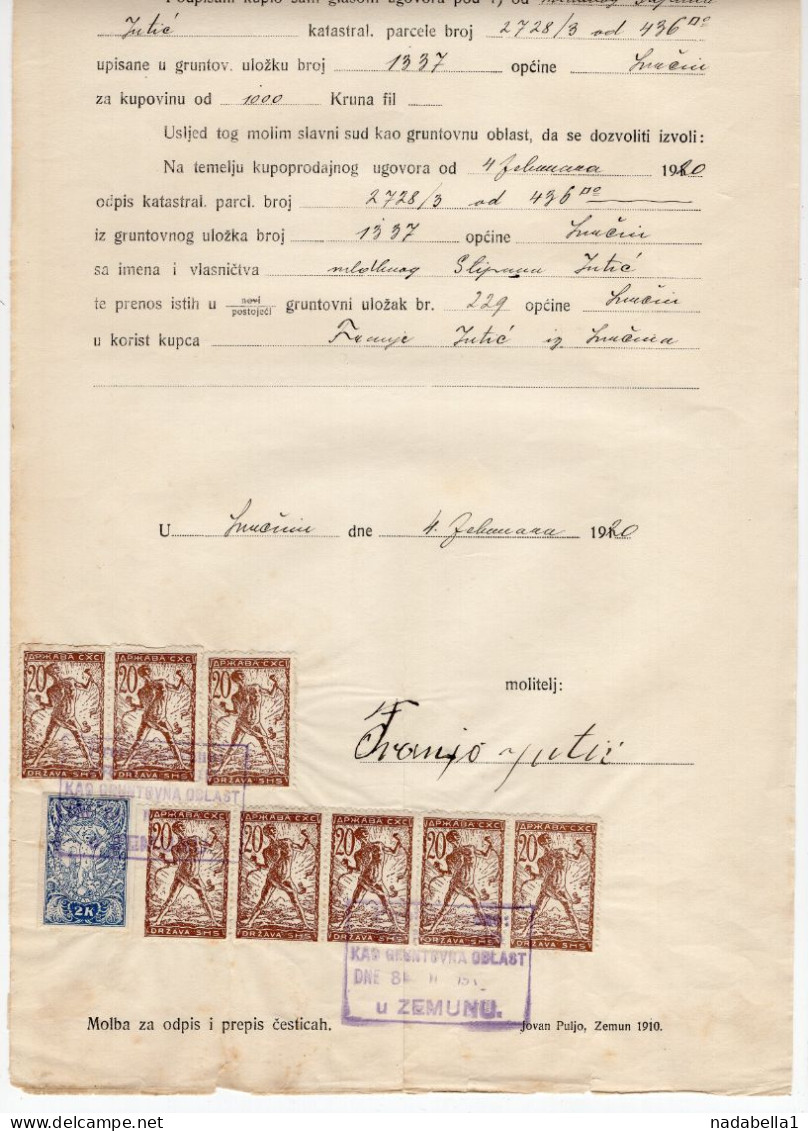 Podpisani kupio sam glasom ugovora pod 1) od
Jutić katastral. parcele broj 2728/3 od 436
upisane u gruntov. uložku broj 1337 općine
za kupovinu od 1000 Kruna fil
Usljed tog molim slavni sud kao gruntovnu oblast, da se dozvoliti izvoli:
Na temelju kupoprodajnog ugovora od 4 Februara 1920
odpis katastral. parcl. broj 2728/3 od 436
iz gruntovnog uložka broj 1337 općine
sa imena i vlasničtva Stipana Jutić
te prenos istih u novi/postojeći gruntovni uložak br. 229 općine
u korist kupca Franje Jutić iz
U dne 4. Februara 1920
molitelj:
Franjo Jutić
20 ДРЖАВА СХС DRŽAVA SHS
20 ДРЖАВА СХС DRŽAVA SHS
20 ДРЖАВА СХС DRŽAVA SHS
KAO GRUNTOVNA OBLAST
2K
20 ДРЖАВА СХС DRŽAVA SHS
20 ДРЖАВА СХС DRŽAVA SHS
20 ДРЖАВА СХС DRŽAVA SHS
20 ДРЖАВА СХС DRŽAVA SHS
20 ДРЖАВА СХС DRŽAVA SHS
KAO GRUNTOVNA OBLAST
DNE
u ZEMUNU.
Molba za odpis i prepis česticah. Jovan Puljo, Zemun 1910.
nadabella1